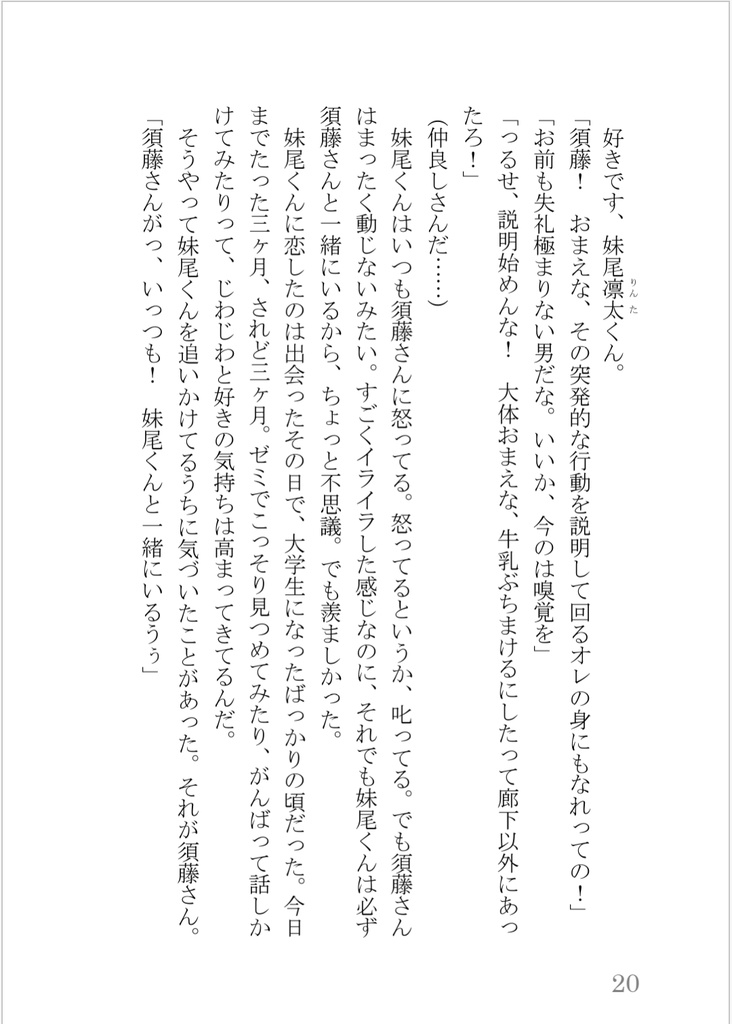 好きです、妹尾凛太くん。
りんた
「須藤！　おまえな、その突発的な行動を説明して回るオレの身にもなれっての！」
「お前も失礼極まりない男だな。いいか、今のは嗅覚を」
「っるせ、説明始めんな！　大体おまえな、牛乳ぶちまけるにしたって廊下以外にあっ
たろ！」
（仲良しさんだ……）
　妹尾くんはいつも須藤さんに怒ってる。怒ってるというか、叱ってる。でも須藤さん
はまったく動じないみたい。すごくイライラした感じなのに、それでも妹尾くんは必ず
須藤さんと一緒にいるから、ちょっと不思議。でも羨ましかった。
　妹尾くんに恋したのは出会ったその日で、大学生になったばっかりの頃だった。今日
までたった三ヶ月、されど三ヶ月。ゼミでこっそり見つめてみたり、がんばって話しか
けてみたりって、じわじわと好きの気持ちは高まってきてるんだ。
　そうやって妹尾くんを追いかけてるうちに気づいたことがあった。それが須藤さん。
「須藤さんがっ、いっつも！　妹尾くんと一緒にいるうぅ」
20